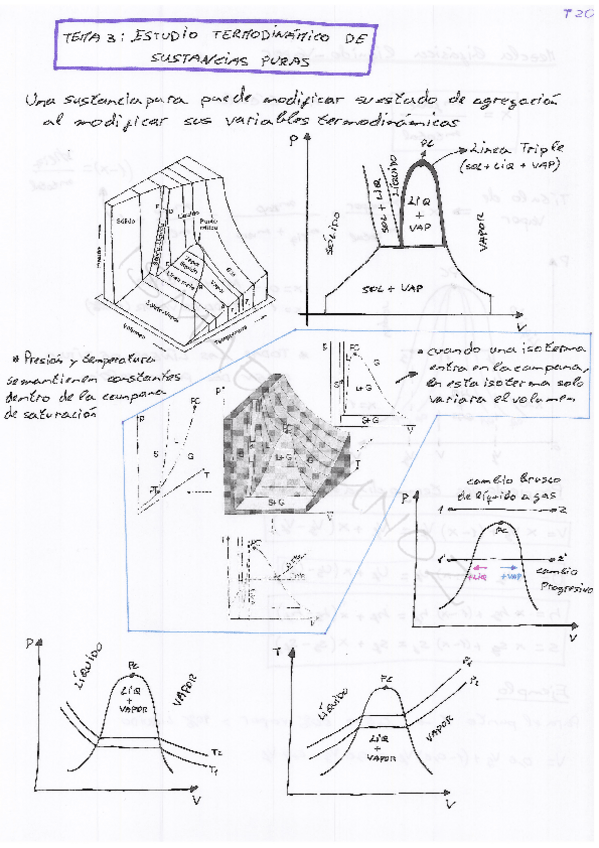 T20
TEMA 3: ESTUDIO TERMODINÁMICO DE
SUSTANCIAS PURAS
Una sustancia pura puede modificar su estado de agregación
al modificar sus variables termodinámicas
P
PC
Línea Triple
(SOL+LIQ+VAP)
SÓLIDO
SOL + LIQ
LÍQUIDO
LIQ
+
VAP
VAPOR
SOL + VAP
V
Sólido
Líquido
Punto
Gas
Vapor
Línea triple
Volumen
Temperatura
* Presión y temperatura
se mantienen constantes
dentro de la campana
de saturación
S
L
PC
G
L+G
S+G
V
* cuando una isoterma
entra en la campana,
en esta isoterma solo
variara el volumen
P
PC
S
G
T
P
PC
L+G
G
S+G
T
V
cambio brusco
de líquido a gas
P
1
2
PC
1'
2'
+LIQ
+VAP
cambio
Progresivo
V
P
LÍQUIDO
PC
LIQ
+
VAPOR
VAPOR
T2
T1
V
T
LÍQUIDO
PC
LIQ
+
VAPOR
VAPOR
P1
P2
V